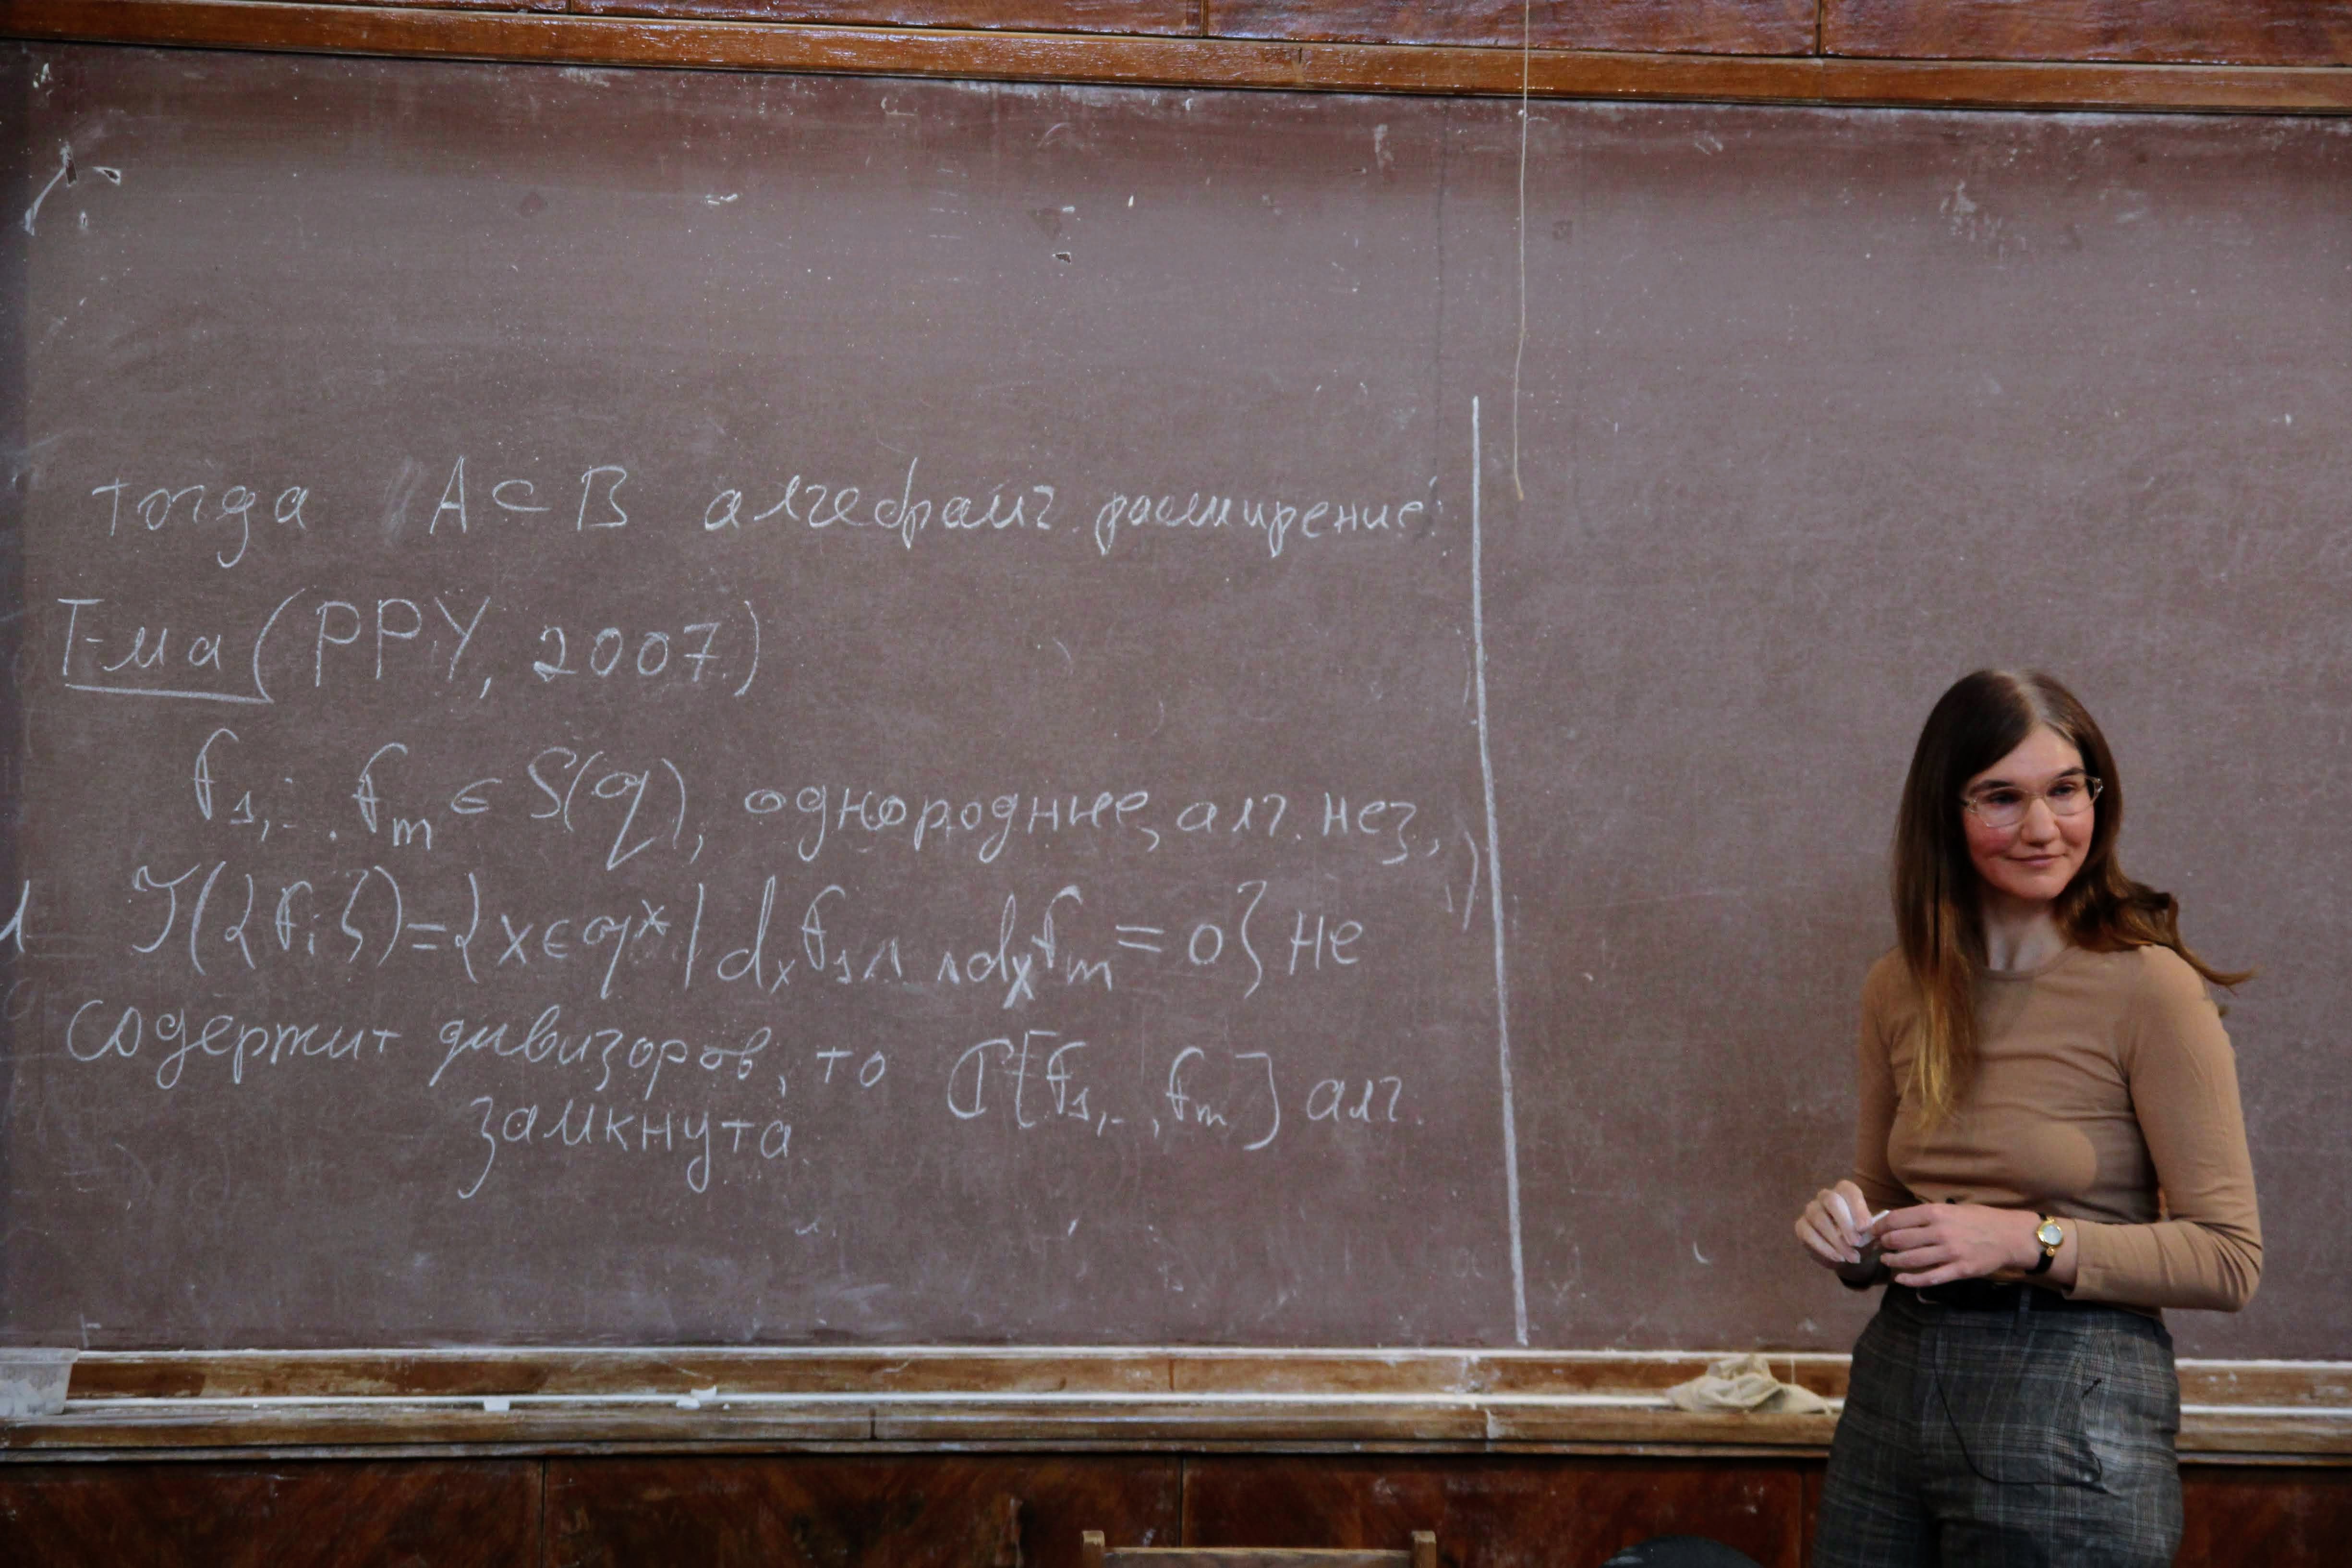 тогда A ⊂ B алгебраич. расширение.
Т-ма (PPY, 2007.)
f₁, .. , fₘ ∈ S(q), однородные, алг. нез,
J({fᵢ}) = {x ∈ q* | dₓf₁ ∧ .. ∧ dₓfₘ = 0} не
содержит дивизоров, то ℂ[f₁, .. , fₘ] алг.
замкнута.